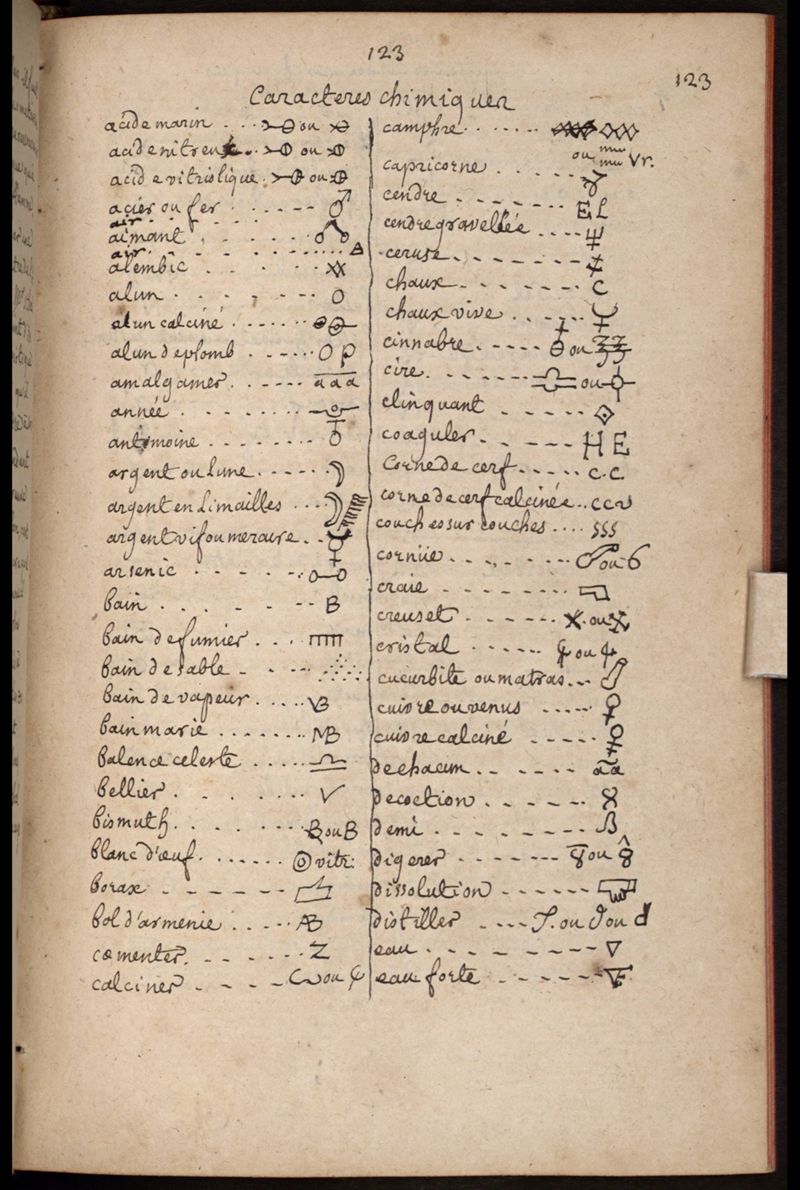 123
123
Caracteres chimiques
acide marin ou
acide nitreux ou
acide vitriolique ou
acier ou fer
air
aimant
air
alembic
alun
alun calciné
alun de plomb O P
amalgamer a a a
année
antimoine
argent ou lune
argent en limailles
argent vif ou mercure
arsenic
bain B
bain de fumier
bain de sable
bain de vapeur VB
bain marie MB
balence celeste
bellier
bismuth ou B
blanc d'œuf vitr:
borax
bol d'armenie AB
cementer Z
calciner ou
camphre
ou Vr.
capricorne
cendre E L
cendre gravellée
ceruse
chaux C
chaux vive
cinnabre ou
cire ou
clinquant
coaguler H E
Corne de cerf C.C.
corne de cerf calcinée
couches sur couches SSS
cornüe ou 6
craie
creuset ou
cristal ou
cucurbite ou matras
cuivre ou venus
cuivre calciné
de chacun aa
decoction
demi
digerer ou
dissolution
distiller ou ou d
eau
eau forte